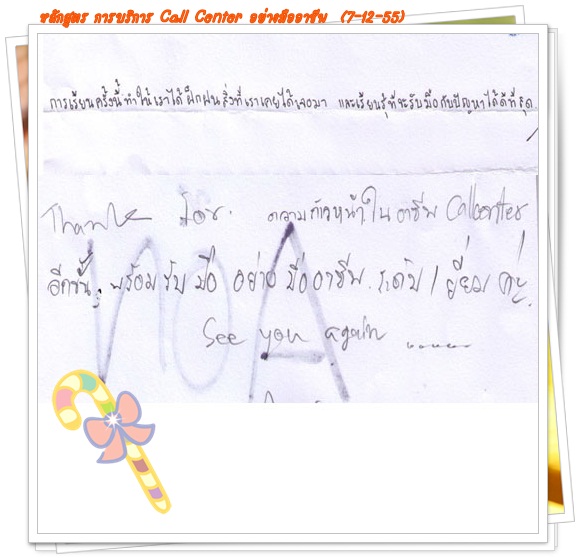 หลักสูตร การบริการ Call Center อย่างมืออาชีพ (7-12-55)
การเรียนครั้งนี้ทำให้เราได้ฝึกฝนสิ่งที่เราเคยได้เจอมา และเรียนรู้ที่จะรับมือกับปัญหาได้ดีที่สุด
Thank for. ความก้าวหน้าในอาชีพ Callcenter
อีกขั้น, พร้อมรับมือ อย่างมืออาชีพ. ระดับ เยี่ยม ค่ะ.
See you again ......